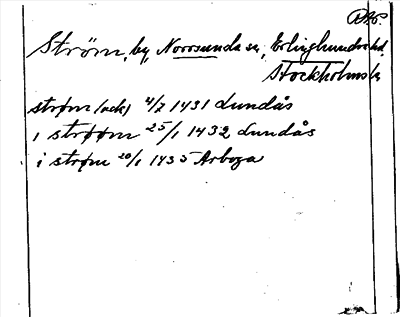 Ström, by, Norrsunda sn, Erlinghundra hd,
Stockholms l.
strøm (ack) 4/7 1431 Lundås
i strøøm 25/1 1432 Lundås
i strøm 20/1 1435 Arboga